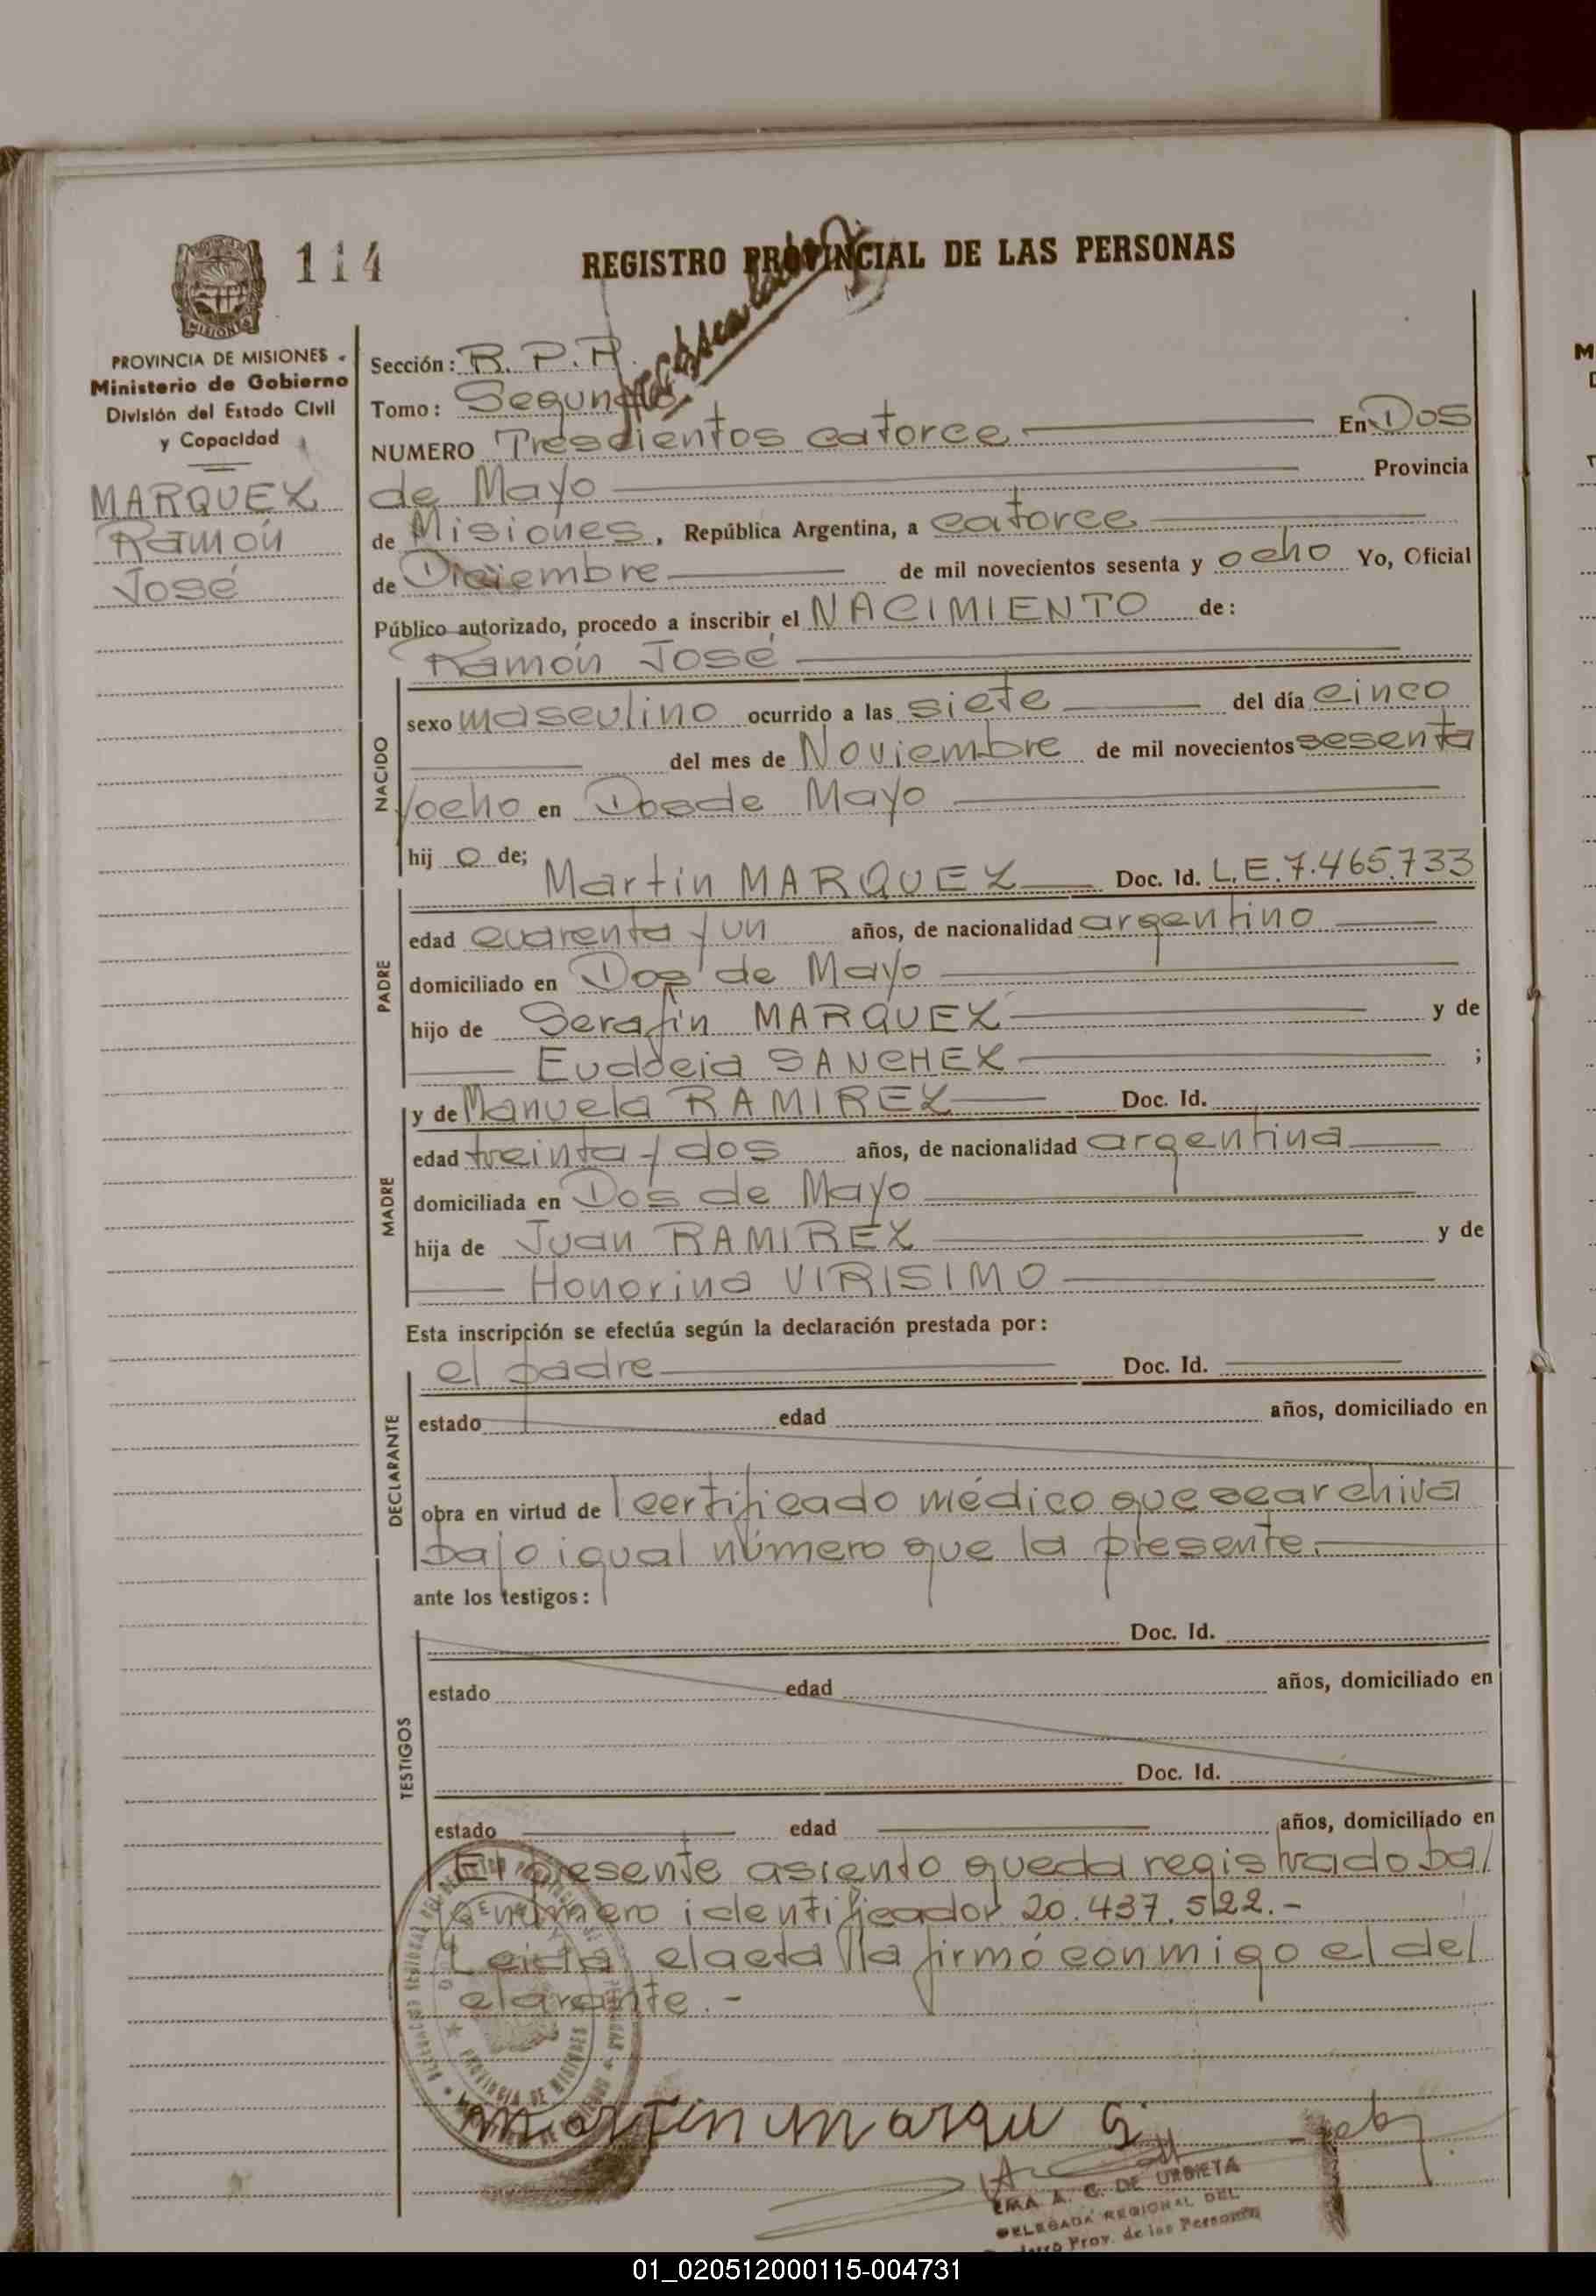 114
REGISTRO PROVINCIAL DE LAS PERSONAS
MISIONES
PROVINCIA DE MISIONES
Ministerio de Gobierno
División del Estado Civil
y Capacidad
MARQUEZ
Ramón
José
Sección: R.P.P.
Tomo: Segundo
NUMERO Trescientos catorce En Dos
de Mayo Provincia
de Misiones, República Argentina, a catorce
de Diciembre de mil novecientos sesenta y ocho Yo, Oficial
Público autorizado, procedo a inscribir el NACIMIENTO de:
Ramón José
NACIDO
sexo masculino ocurrido a las siete del día cinco
del mes de Noviembre de mil novecientos sesenta
y ocho en Dos de Mayo
hijo de; Martin MARQUEZ Doc. Id. L.E. 7.465.733
PADRE
edad cuarenta y un años, de nacionalidad argentino
domiciliado en Dos de Mayo
hijo de Serafin MARQUEZ y de
Eudoeia SANCHEZ ;
MADRE
y de Manuela RAMIREZ Doc. Id.
edad treinta y dos años, de nacionalidad argentina
domiciliada en Dos de Mayo
hija de Juan RAMIREZ y de
Honorina VIRISIMO
Esta inscripción se efectúa según la declaración prestada por:
DECLARANTE
el padre Doc. Id.
estado edad años, domiciliado en
obra en virtud de certificado médico que se archiva
bajo igual número que la presente.
ante los testigos:
TESTIGOS
Doc. Id.
estado edad años, domiciliado en
Doc. Id.
estado edad años, domiciliado en
El presente asiento queda registrado baj
o número identificador 20.437.522.-
Leida el acta lla firmó conmigo el del
clarante.-
PROVINCIA DE MISIONES
martin marqu
A. C. DE URBIETA
DELEGADA REGIONAL DEL
Prov. de las Personas
01_020512000115-004731